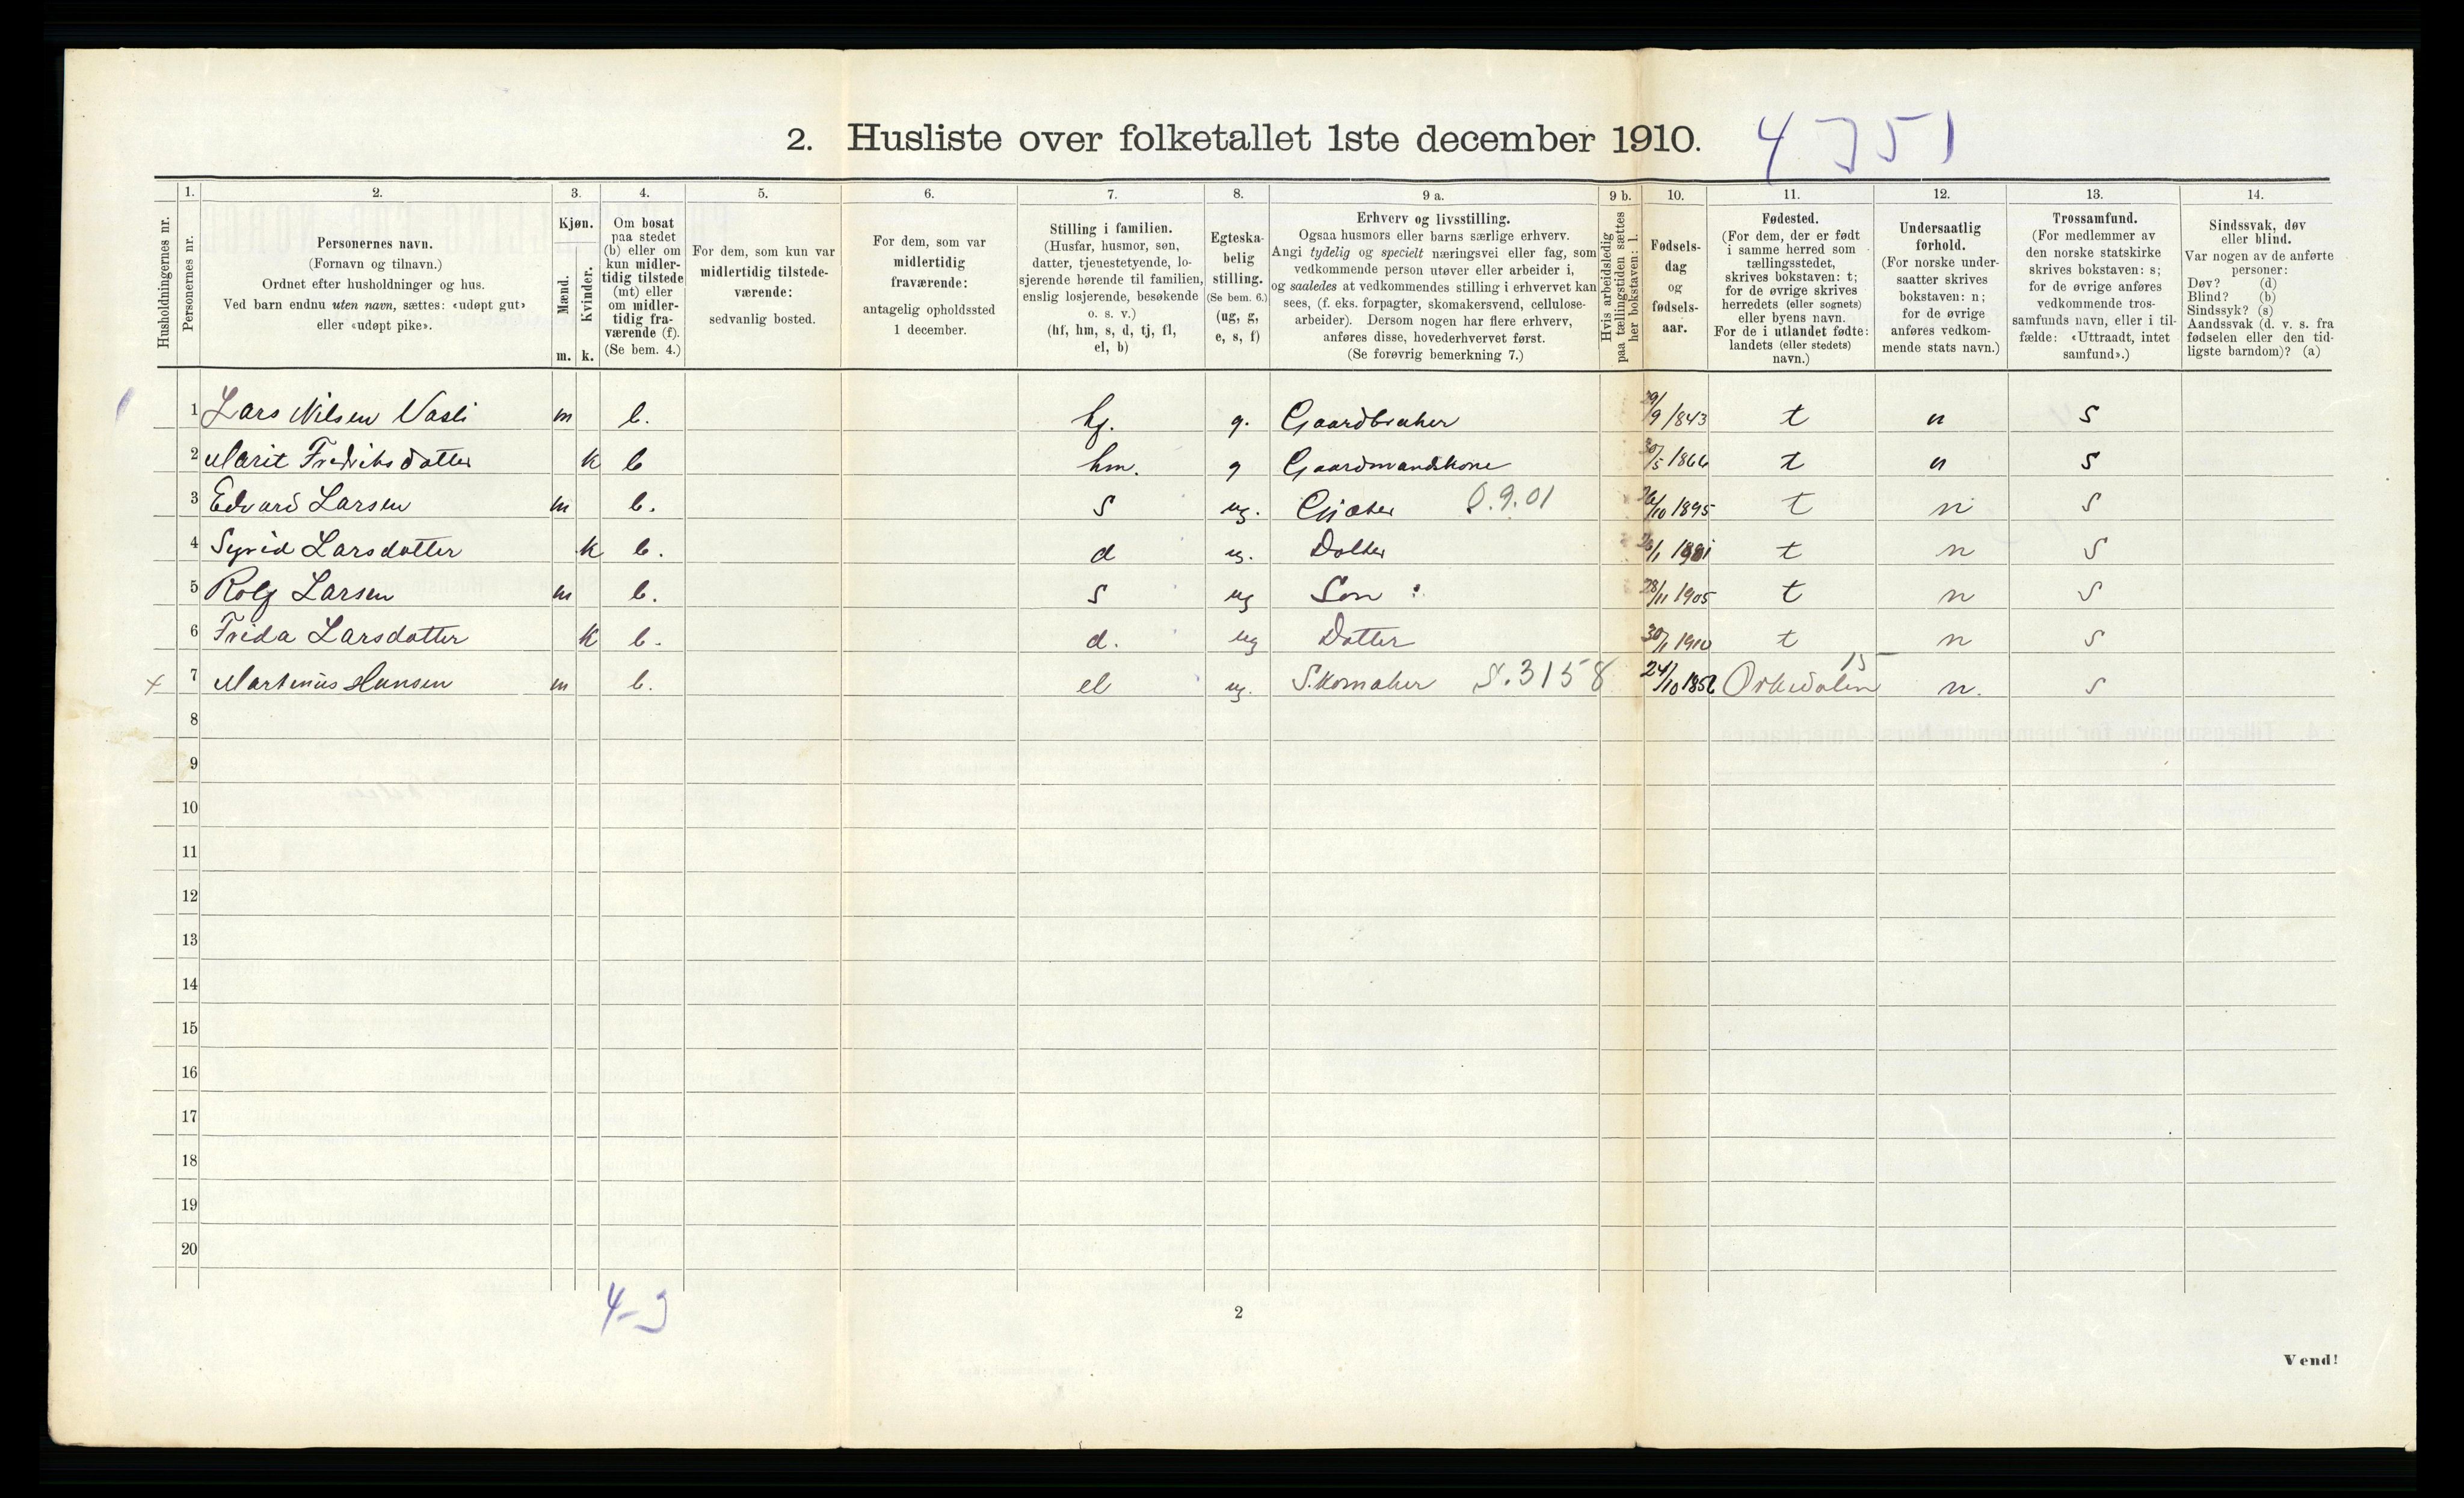 2. Husliste over folketallet 1ste december 1910.
1. 2. 3. 4. 5. 6. 7. 8. 9 a. 9 b. 10. 11. 12. 13. 14.
Husholdningernes nr.
Personernes nr.
Personernes navn.
(Fornavn og tilnavn.)
Ordnet efter husholdninger og hus.
Ved barn endnu uten navn, sættes: «udøpt gut»
eller «udøpt pike».
Kjøn.
Mænd.
Kvinder.
m. k.
Om bosat
paa stedet
(b) eller om
kun midler-
tidig tilstede
(mt) eller
om midler-
tidig fra-
værende (f).
(Se bem. 4.)
For dem, som kun var
midlertidig tilstede-
værende:
sedvanlig bosted.
For dem, som var
midlertidig
fraværende:
antagelig opholdssted
1 december.
Stilling i familien.
(Husfar, husmor, søn,
datter, tjenestetyende, lo-
sjerende hørende til familien,
enslig losjerende, besøkende
o. s. v.)
(hf, hm, s, d, tj, fl,
el, b)
Egteska-
belig
stilling.
(Se bem. 6.)
(ug, g,
e, s, f)
Erhverv og livsstilling.
Ogsaa husmors eller barns særlige erhverv.
Angi tydelig og specielt næringsvei eller fag, som
vedkommende person utøver eller arbeider i,
og saaledes at vedkommendes stilling i erhvervet kan
sees, (f. eks. forpagter, skomakersvend, cellulose-
arbeider). Dersom nogen har flere erhverv,
anføres disse, hovederhvervet først.
(Se forøvrig bemerkning 7.)
Hvis arbeidsledig
paa tællingstiden sættes
her bokstaven: l.
Fødsels-
dag
og
fødsels-
aar.
Fødested.
(For dem, der er født
i samme herred som
tællingsstedet,
skrives bokstaven: t;
for de øvrige skrives
herredets (eller sognets)
eller byens navn.
For de i utlandet fødte:
landets (eller stedets)
navn.)
Undersaatlig
forhold.
(For norske under-
saatter skrives
bokstaven: n;
for de øvrige
anføres vedkom-
mende stats navn.)
Trossamfund.
(For medlemmer av
den norske statskirke
skrives bokstaven: s;
for de øvrige anføres
vedkommende tros-
samfunds navn, eller i til-
fælde: «Uttraadt, intet
samfund».)
Sindssvak, døv
eller blind.
Var nogen av de anførte
personer:
Døv? (d)
Blind? (b)
Sindssyk? (s)
Aandssvak (d. v. s. fra
fødselen eller den tid-
ligste barndom)? (a)
1 Lars Nilsen Vasli m b. hf. g. Gaardbruker /9 1843 t n s
2 Marit Fredriksdatter k b hm. g Gaardmandskone 30/5 1866 t n s
3 Edvard Larsen m b. s ug. 0.9.01 26/10 1895 t n s
4 Sigrid Larsdatter k b. d ug. Datter t n s
5 Rolf Larsen m b. s ug Søn : 28/11 1905 t n s
6 Frida Larsdatter k b. d. ug Datter 30/1 1910 t n s
15
x 7 Martinus Hansen m b. el ug. Skomaker S.3158 24/10 185 Orkedalen n. s
8
9
10
11
12
13
14
15
16
17
18
19
20
2
Vend!